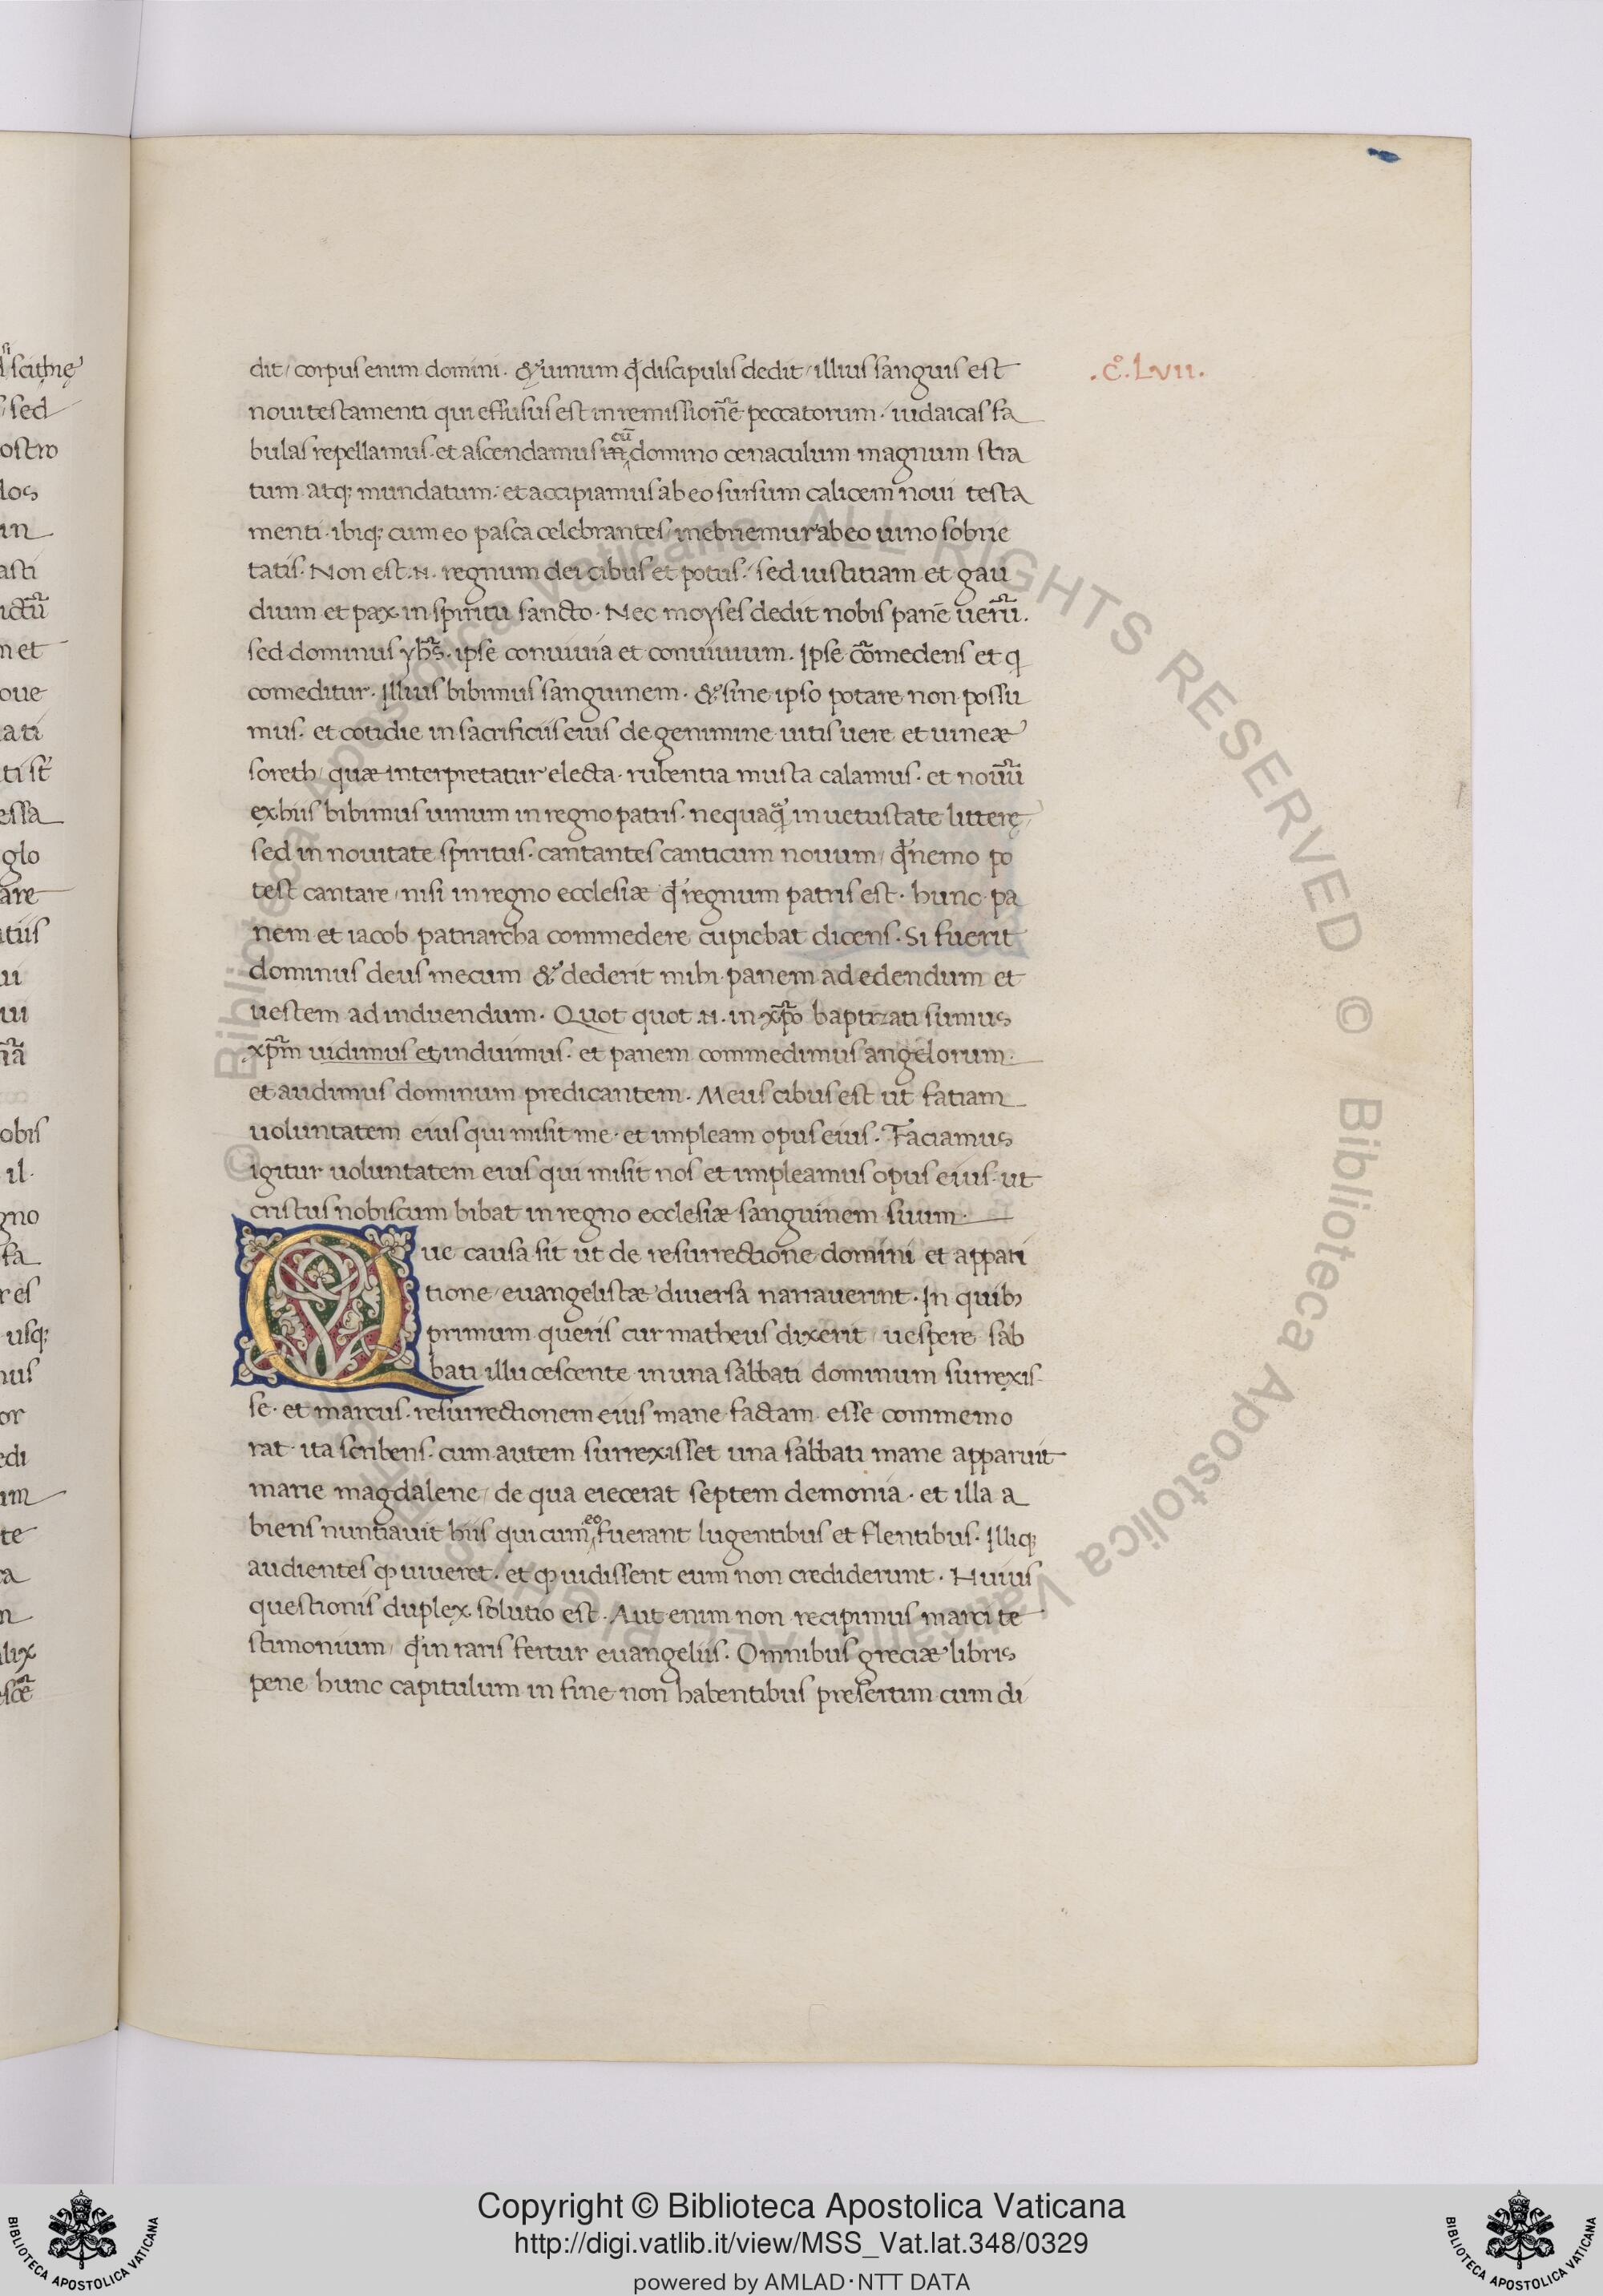 dit / corpus enim domini · & uinum qđ discipulis dedit / illius sanguis est
·C̊·LVII·
noui testamenti qui effusus est in remissionē peccatorum / iudaicas fa
bulas repellamus · et ascendamus in cū domino cenaculum magnum stra
tum atq; mundatum · et accipiamus ab eo sursum calicem noui testa
menti · ibiq; cum eo pasca celebrantes / inebriemur ab eo uino sobrie
tatis · Non est · N · regnum dei cibus et potus / sed iustitiam et gau
dium et pax in spiritu sancto · Nec moyses dedit nobis panē uerū ·
sed dominus yhs̄ · ipse conuiuia et conuiuium · Ipse cōmedens et q
comeditur · Illius bibimus sanguinem · & sine ipso potare non possu
mus · et cotidie in sacrificiis eius de genimine uitis uere et uineæ
soreth / quæ interpretatur electa · rubentia musta calamus · et nouū
ex hiis bibimus uinum in regno patris · nequaq̄ in uetustate litterę /
sed in nouitate spiritus · cantantes canticum nouum / qđ nemo po
test cantare / nisi in regno ecclesiæ qđ regnum patris est · hunc pa
nem et iacob patriarcha commedere cupiebat dicens · Si fuerit
dominus deus mecum & dederit mihi panem ad edendum et
uestem ad induendum · Quot quot · N · in xp̄o baptizati sumus
xp̄m uidimus et induimus · et panem commedimus angelorum ·
et audimus dominum predicantem · Meus cibus est ut fatiam
uoluntatem eius qui misit me · et impleam opus eius · Faciamus
igitur uoluntatem eius qui misit nos et impleamus opus eius · ut
cristus nobiscum bibat in regno ecclesiæ sanguinem suum ·
Que causa sit ut de resurrectione domini et appari
tione / euangelistæ diuersa narrauerint · In quib;
primum queris cur matheus dixerit / uespere sab
bati illucescente in una sabbati dominum surrexis
se · et marcus resurrectionem eius mane factam esse commemo
rat · ita scribens · cum autem surrexisset una sabbati mane apparuit
marie magdalene / de qua eiecerat septem demonia · et illa a
biens nuntiauit hiis qui cum eo fuerant lugentibus et flentibus · Illiq;
audientes ꝙ uiueret · et ꝙ uidissent eum non crediderunt · Huius
questionis duplex solutio est · Aut enim non recipimus marci te
stimonium / qđ in raris fertur euangeliis · Omnibus greciæ libris
pene hunc capitulum in fine non habentibus presertim cum di
Copyright © Biblioteca Apostolica Vaticana
http://digi.vatlib.it/view/MSS_Vat.lat.348/0329
powered by AMLAD·NTT DATA
BIBLIOTECA APOSTOLICA VATICANA
BIBLIOTECA APOSTOLICA VATICANA
© Biblioteca Apostolica Vaticana ALL RIGHTS RESERVED
© Biblioteca Apostolica Vaticana ALL RIGHTS RESERVED